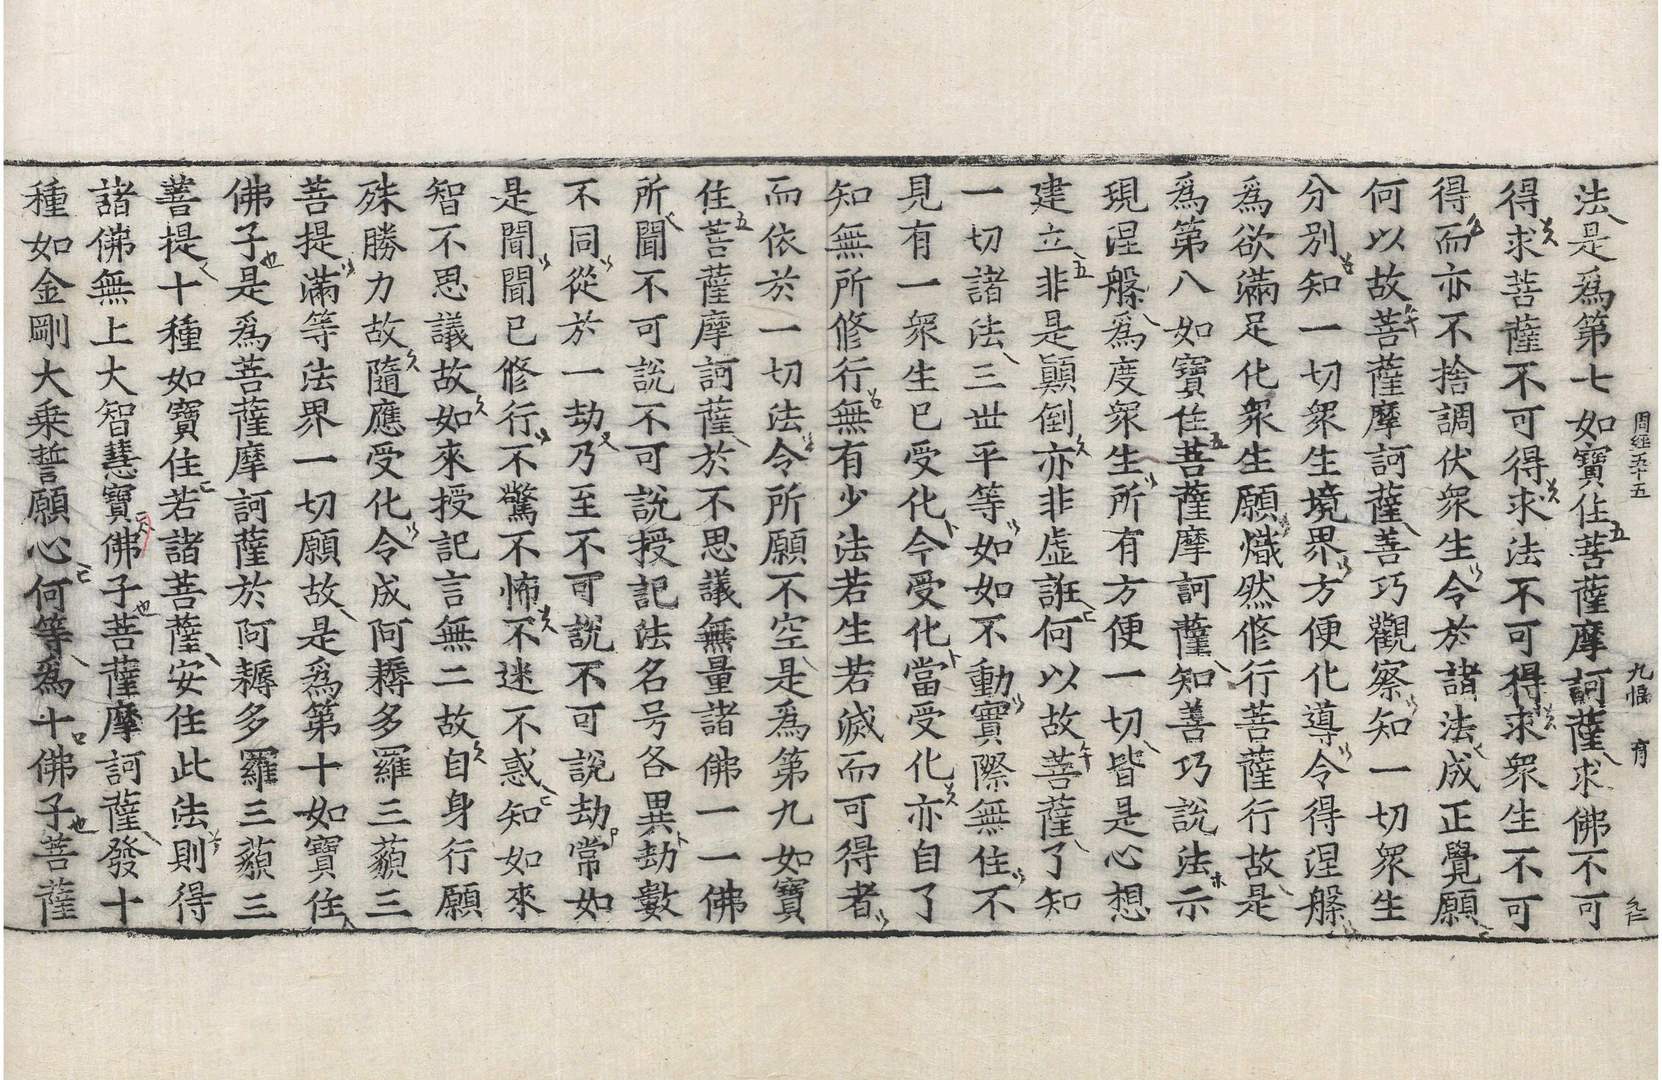 周經五十五 九幅 有
法是爲第七如寶住菩薩摩訶薩求佛不可
得求菩薩不可得求法不可得求衆生不可
得而亦不捨調伏衆生令於諸法成正覺願
何以故菩薩摩訶薩善巧觀察知一切衆生
分別知一切衆生境界方便化導令得涅槃
爲欲滿足化衆生願熾然修行菩薩行故是
爲第八如寶住菩薩摩訶薩知善巧說法示
現涅槃爲度衆生所有方便一切皆是心想
建立非是顚倒亦非虛誑何以故菩薩了知
一切諸法三世平等如如不動實際無住不
見有一衆生已受化今受化當受化亦自了
知無所修行無有少法若生若滅而可得者
而依於一切法令所願不空是爲第九如寶
住菩薩摩訶薩於不思議無量諸佛一一佛
所聞不可說不可說授記法名号各異劫數
不同從於一劫乃至不可說不可說劫常如
是聞聞已修行不驚不怖不迷不惑知如來
智不思議故如來授記言無二故自身行願
殊勝力故隨應受化令成阿耨多羅三藐三
菩提滿等法界一切願故是爲第十如寶住
佛子是爲菩薩摩訶薩於阿耨多羅三藐三
菩提十種如寶住若諸菩薩安住此法則得
諸佛無上大智慧寶佛子菩薩摩訶薩發十
種如金剛大乘誓願心何等爲十佛子菩薩